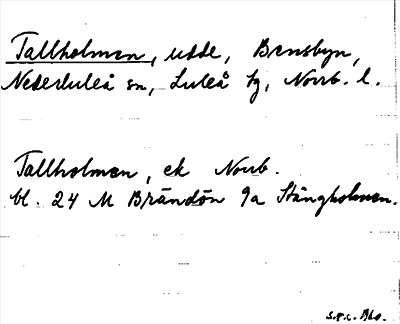 Tallholmen, udde, Bensbyn,
Nederluleå sn, Luleå tg, Norrb. l.
Tallholmen, ek Norrb.
bl. 24 M Brändön 9a Stångholmen.